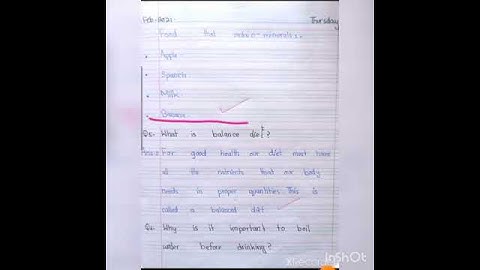 Feb 2021 Thursday
Food that contain minerals
Apple
Spanch
Milk
Banana
Q5. What is balance diet?
Ans: For good health our diet must have
all the nutrients that our body
needs in proper quantities. This is
called a balanced diet
Q6. Why is it important to boil
water before drinking?
InShOt